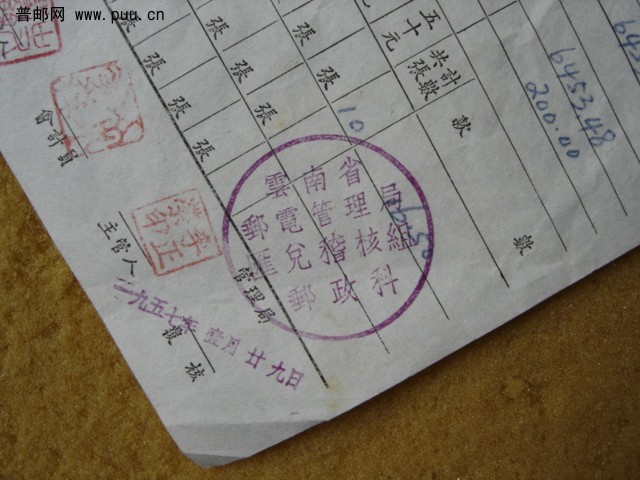 普邮网 www.puu.cn
五十元
共計
張數
款
數
張 張 張
張 張
張 張
張
張
10
645348
200.00
會計員
主管人
覆核
管理局
雲南省
郵電管理局
匯兌稽核組
郵政科
一九五七年壹月廿九日